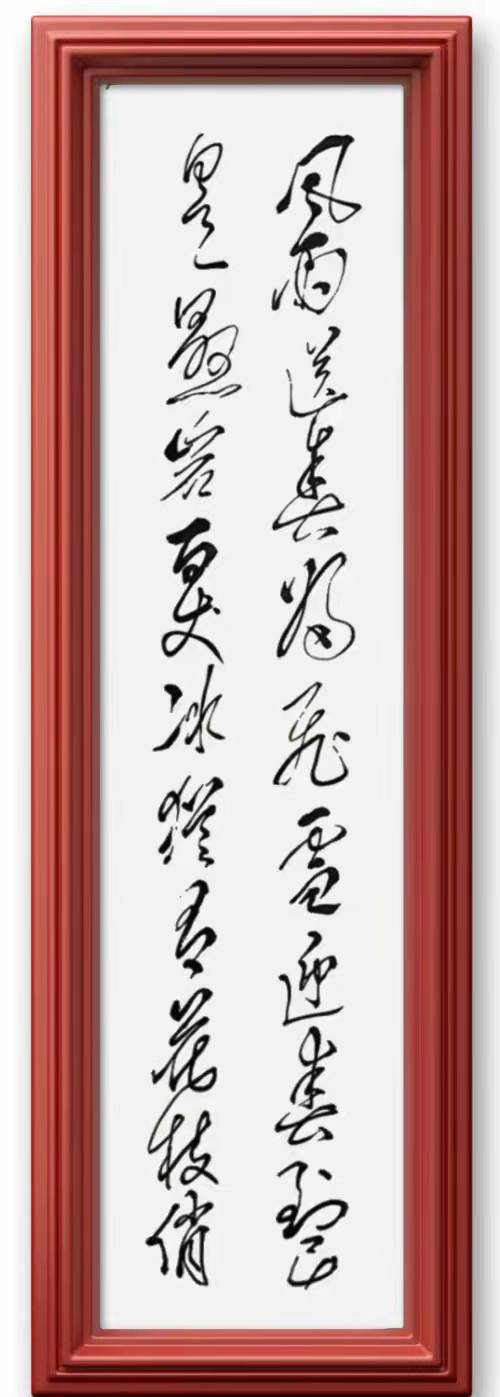 风雨送春归飞雪迎春到已
是懸岩百丈冰猶有花枝俏